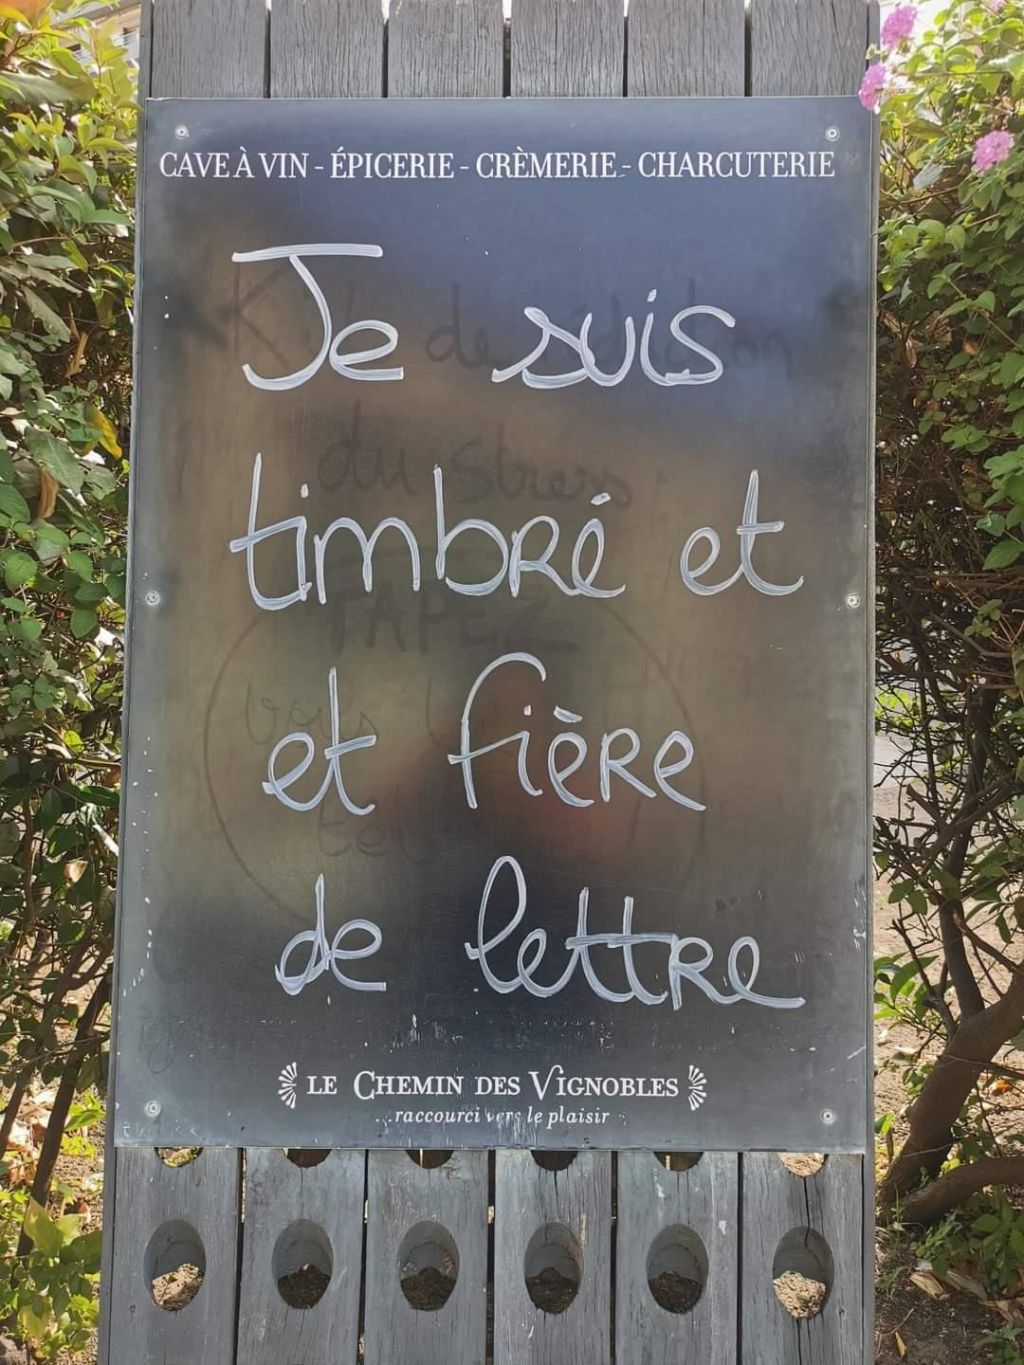 CAVE À VIN - ÉPICERIE - CRÈMERIE - CHARCUTERIE
Je suis
timbré et
et fière
de lettre
LE CHEMIN DES VIGNOBLES
...raccourci vers le plaisir